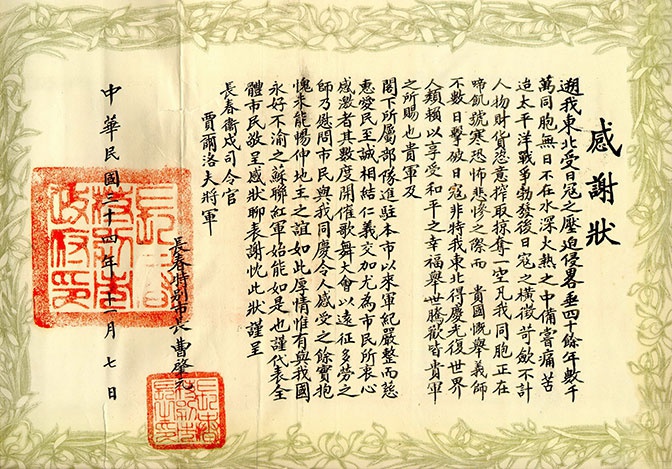 感謝狀
遡我東北受日寇之壓迫侵畧垂四十餘年數千
萬同胞無日不在水深火熱之中備嘗痛苦
迨太平洋戰爭勃發後日寇之橫徵苛斂不計
人物財貨恣意搾取掠奪一空凡我同胞正在
啼飢號寒恐怖悲慘之際而 貴國慨舉義師
不數日擊破日寇非特我東北得慶光復世界
人類賴以享受和平之幸福舉世騰歡皆 貴軍
之所賜也貴軍及
閣下所屬部隊進駐本市以來軍紀嚴整而慈
惠愛民至誠相結仁義交加尤為市民所衷心
感激者其數度開催歌舞大會以遠征多勞之
師乃慰問市民與我同慶令人感受之餘實抱
愧未能暢仰地主之誼如此厚情惟有與我國
永好不渝之蘇聯紅軍始能如是也謹代表全
體市民敬呈感狀聊表謝忱此狀謹呈
長春衛戍司令官
賈爾洛夫將軍
長春特別市長 曹肇元
中華民國三十四年十一月七日
長春特別市政府印